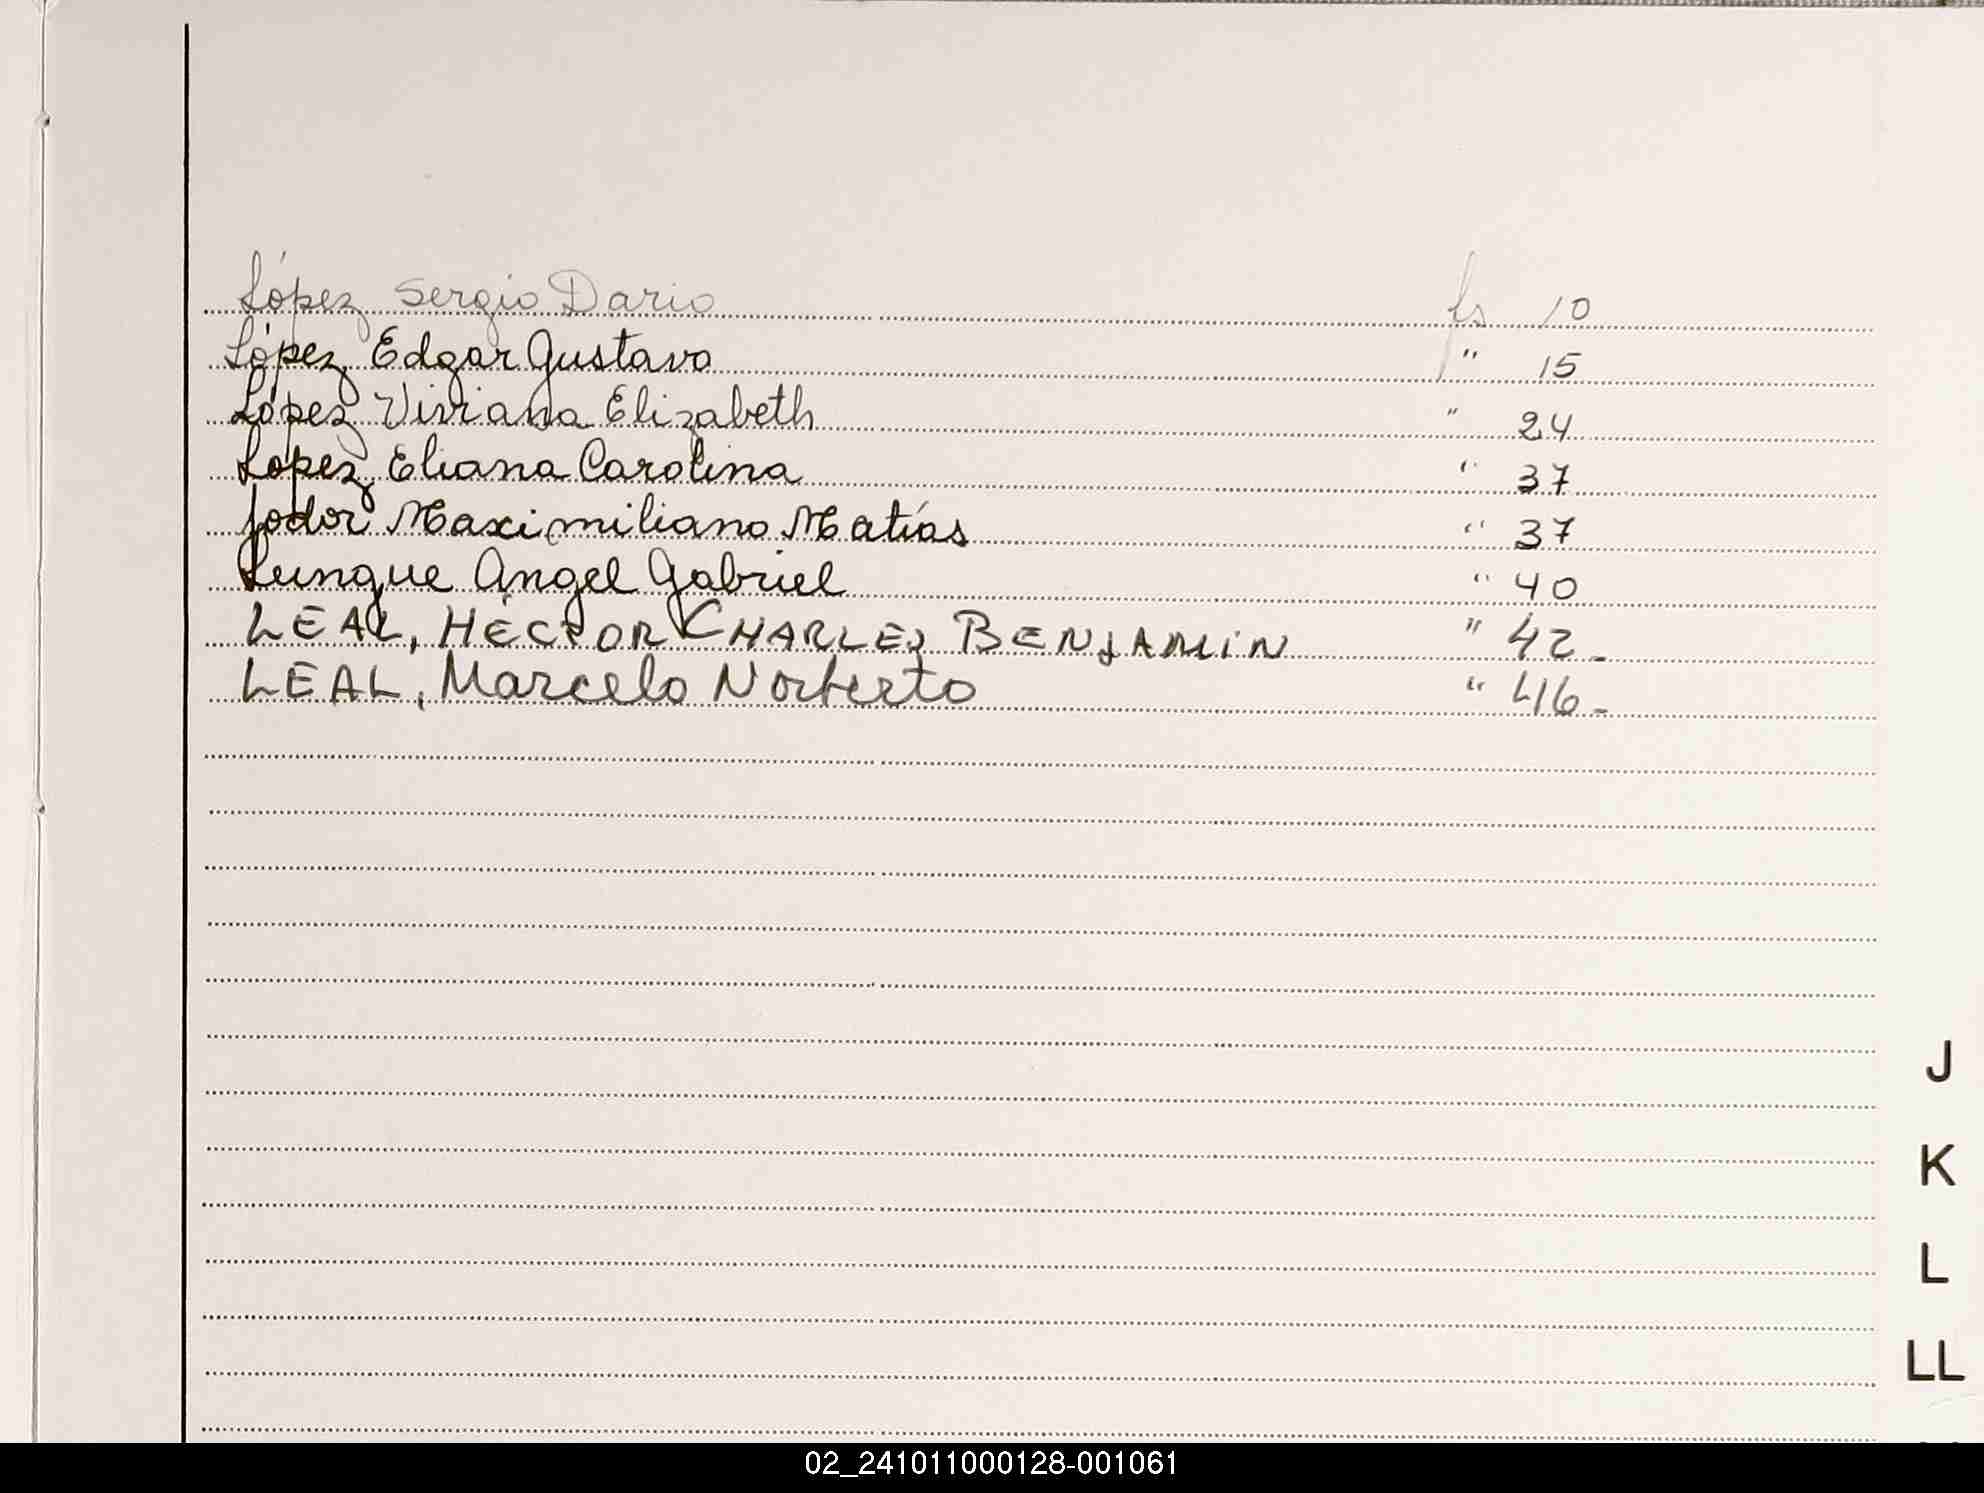 López Sergio Dario fs 10
López, Edgar Gustavo " 15
López Viviana Elizabeth " 24
López, Eliana Carolina " 37
Jodor Maximiliano Matías " 37
Lungue Angel Gabriel " 40
LEAL, HÉCTOR CHARLES BENJAMIN " 42-
LEAL, Marcelo Norberto " 46-
J
K
L
LL
02_241011000128-001061